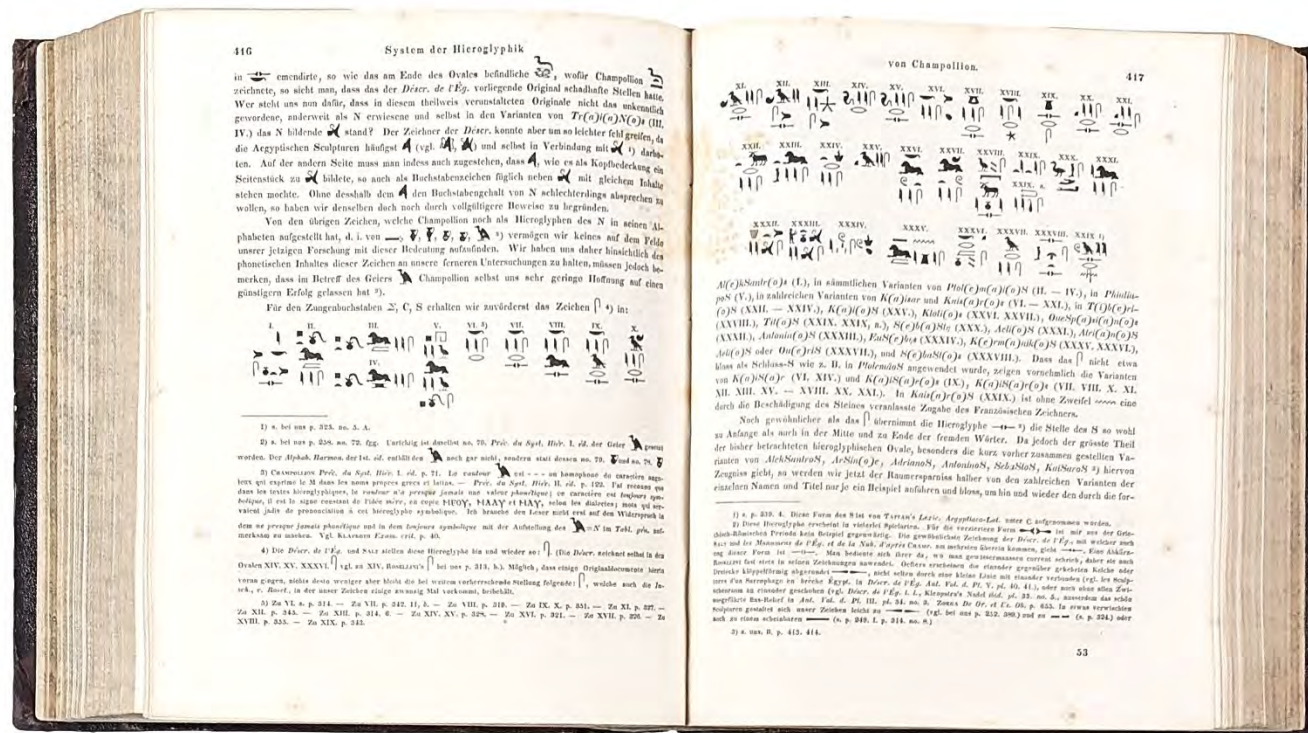 416
System der Hieroglyphik
in emendirte, so wie das am Ende des Ovales befindliche , wofür Champollion
zeichnete, so sieht man, dass das der Déscr. de l'Ég. vorliegende Original schadhafte Stellen hatte.
Wer steht uns nun dafür, dass in diesem theilweis verunstalteten Originale nicht das unkenntlich
gewordene, anderweit als N erwiesene und selbst in den Varianten von Tr(a)i(a)N(o)s (III.
IV.) das N bildende stand? Der Zeichner der Déscr. konnte aber um so leichter fehl greifen, da
die Aegyptischen Sculpturen häufigst (vgl. , ) und selbst in Verbindung mit ¹) darbo-
ten. Auf der andern Seite muss man indess auch zugestehen, dass , wie es als Kopfbedeckung ein
Seitenstück zu bildete, so auch als Buchstabenzeichen füglich neben mit gleichem Inhalte
stehen mochte. Ohne desshalb dem den Buchstabengehalt von N schlechterdings absprechen zu
wollen, so haben wir denselben doch noch durch vollgültigere Beweise zu begründen.
Von den übrigen Zeichen, welche Champollion noch als Hieroglyphen des N in seinen Al-
phabeten aufgestellt hat, d. i. von ²) vermögen wir keines auf dem Felde
unsrer jetzigen Forschung mit dieser Bedeutung aufzufinden. Wir haben uns daher hinsichtlich des
phonetischen Inhaltes dieser Zeichen an unsere ferneren Untersuchungen zu halten, müssen jedoch be-
merken, dass im Betreff des Geiers Champollion selbst uns sehr geringe Hoffnung auf einen
günstigern Erfolg gelassen hat ³).
Für den Zungenbuchstaben Σ, C, S erhalten wir zuvörderst das Zeichen ⁴) in:
I. II. III. V. VI. ⁵) VII. VIII. IX. X.
IV.
1) s. bei uns p. 325. no. 5. A.
2) s. bei uns p. 258. no. 72. fgg. Unrichtig ist daselbst no. 79. Préc. du Syst. Hiér. I. éd. der Geier genannt
worden. Der Alphab. Harmon. der Ist. éd. enthält den noch gar nicht, sondern statt dessen no. 79. und no. 78.
3) CHAMPOLLION Préc. du Syst. Hiér. I. éd. p. 71. Le vautour est - - - un homophone du caractère angu-
leux qui exprime le M dans les noms propres grecs et latins. — Préc. du Syst. Hiér. II. éd. p. 122. J'ai reconnu que
dans les textes hiéroglyphiques, le vautour n'a presque jamais une valeur phonétique; ce caractère est toujours sym-
bolique, il est le signe constant de l'idée mère, en copte
vaient jadis de prononciation à cet hiéroglyphe symbolique. Ich brauche den Leser nicht erst auf den Widerspruch in
dem ne presque jamais phonétique und in dem toujours symbolique mit der Aufstellung des = N im Tabl. gén. auf-
merksam zu machen. Vgl. KLAPROTH Exam. crit. p. 40.
4) Die Déscr. de l'Ég. und SALT stellen diese Hieroglyphe hin und wieder so: . (Die Déscr. zeichnet selbst in den
Ovalen XIV. XV. XXXVI. vgl. zu XIV. ROSELLINI's bei uns p. 313. b.). Möglich, dass einige Originaldocumente hierin
voran gingen, nichts desto weniger aber bleibt die bei weitem vorherrschende Stellung folgende: , welche auch die In-
sck., r. Roset., in der unser Zeichen einige zwanzig Mal vorkommt, beibehält.
5) Zu VI. s. p. 314. — Zu VII. p. 342. 11, b. — Zu VIII. p. 319. — Zu IX. X. p. 351. — Zu XI. p. 327. —
Zu XII. p. 343. — Zu XIII. p. 314, 6. — Zu XIV. XV. p. 328. — Zu XVI. p. 321. — Zu XVII. p. 320. — Zu
XVIII. p. 335. — Zu XIX. p. 342.
von Champollion.
417
XI. XII. XIII. XIV. XV. XVI. XVII. XVIII. XIX. XX. XXI.
XXII. XXIII. XXIV. XXV. XXVI. XXVII. XXVIII. XXIX. XXX. XXXI.
XXIX. a.
XXXII. XXXIII. XXXIV. XXXV. XXXVI. XXXVII. XXXVIII. XXIX ¹)
Al(e)kSantr(o)s (I.), in sämmtlichen Varianten von Ptol(e)m(a)i(o)S (II. — IV.), in Philip-
poS (V.), in zahlreichen Varianten von K(a)isar und Kais(a)r(o)s (VI. — XXI.), in T(i)b(e)ri-
(o)S (XXII. — XXIV.), K(a)i(o)S (XXV.), Kloti(o)s (XXVI. XXVII.), OueSp(a)si(a)n(o)s
(XXVIII.), Tit(o)S (XXIX. XXIX, a.), S(e)b(a)Stς (XXX.), Aeli(o)S (XXXI.), Atri(a)n(o)S
(XXXII.), Antonin(o)S (XXXIII.), EuS(e)bης (XXXIV.), K(e)rm(a)nik(o)S (XXXV. XXXVI.),
Aeli(o)S oder Ou(e)riS (XXXVII.), und S(e)baSt(o)s (XXXVIII.). Dass das nicht etwa
bloss als Schluss-S wie z. B. in PtolemäoS angewendet wurde, zeigen vornehmlich die Varianten
von K(a)iS(a)r (VI. XIV.) und K(a)iS(a)r(o)s (IX.), K(a)iS(a)r(o)s (VII. VIII. X. XI.
XII. XIII. XV. — XVIII. XX. XXI.). In Kais(a)r(o)S (XXIX.) ist ohne Zweifel eine
durch die Beschädigung des Steines veranlasste Zugabe des Französischen Zeichners.
Noch gewöhnlicher als das übernimmt die Hieroglyphe ²) die Stelle des S so wohl
zu Anfange als auch in der Mitte und zu Ende der fremden Wörter. Da jedoch der grösste Theil
der bisher betrachteten hieroglyphischen Ovale, besonders die kurz vorher zusammen gestellten Va-
rianten von AlekSantroS, ArSin(o)e, AdrianoS, AntoninoS, SebaStoS, KaiSaroS ³) hiervon
Zeugniss giebt, so werden wir jetzt der Raumersparniss halber von den zahlreichen Varianten der
einzelnen Namen und Titel nur je ein Beispiel anführen und bloss, um hin und wieder den durch die for-
1) s. p. 239. 4. Diese Form des S ist von TATTAM's Lexic. Aegyptiaco-Lat. unter C aufgenommen worden.
2) Diese Hieroglyphe erscheint in vielerlei Spielarten. Für die verzierten Form ist mir aus der Grie-
chisch-Römischen Periode kein Beispiel gegenwärtig. Die gewöhnlichste Zeichnung der Déscr. de l'Ég., mit welcher auch
SALT und les Monumens de l'Ég. et de la Nub. d'après CHAMP. am mehrsten überein kommen, giebt . Eine Abkürz-
ung dieser Form ist . Man bediente sich ihrer da, wo man gewissermaassen current schrieb, daher sie auch
ROSELLINI fast stets in seinen Zeichnungen anwendet. Oefters erscheinen die einander gegenüber gekehrten Kelche oder
Dreiecke klöppelförmig abgerundet , nicht selten durch eine kleine Linie mit einander verbunden (vgl. les Sculp-
tures d'un Sarcophage en brèche Égypt. in Déscr. de l'Ég. Ant. Vol. d. Pl. V. pl. 40. 41.), oder auch ohne allen Zwi-
schenraum an einander geschoben (vgl. Déscr. de l'Ég. l. l., Kleopatra's Nadel ibid. pl. 32. no. 5., ausserdem das schön
ausgeführte Bas-Relief in Ant. Vol. d. Pl. III. pl. 34. no. 3. ZOEGA De Or. et Us. Ob. p. 655. In etwas verwischten
Sculpturen gestaltet sich unser Zeichen leicht zu (vgl. bei uns p. 252. 380.) und zu (s. p. 324.) oder
auch zu einem scheinbaren (s. p. 249. I. p. 314. no. 8.)
3) s. uns. B. p. 412. 414.
53